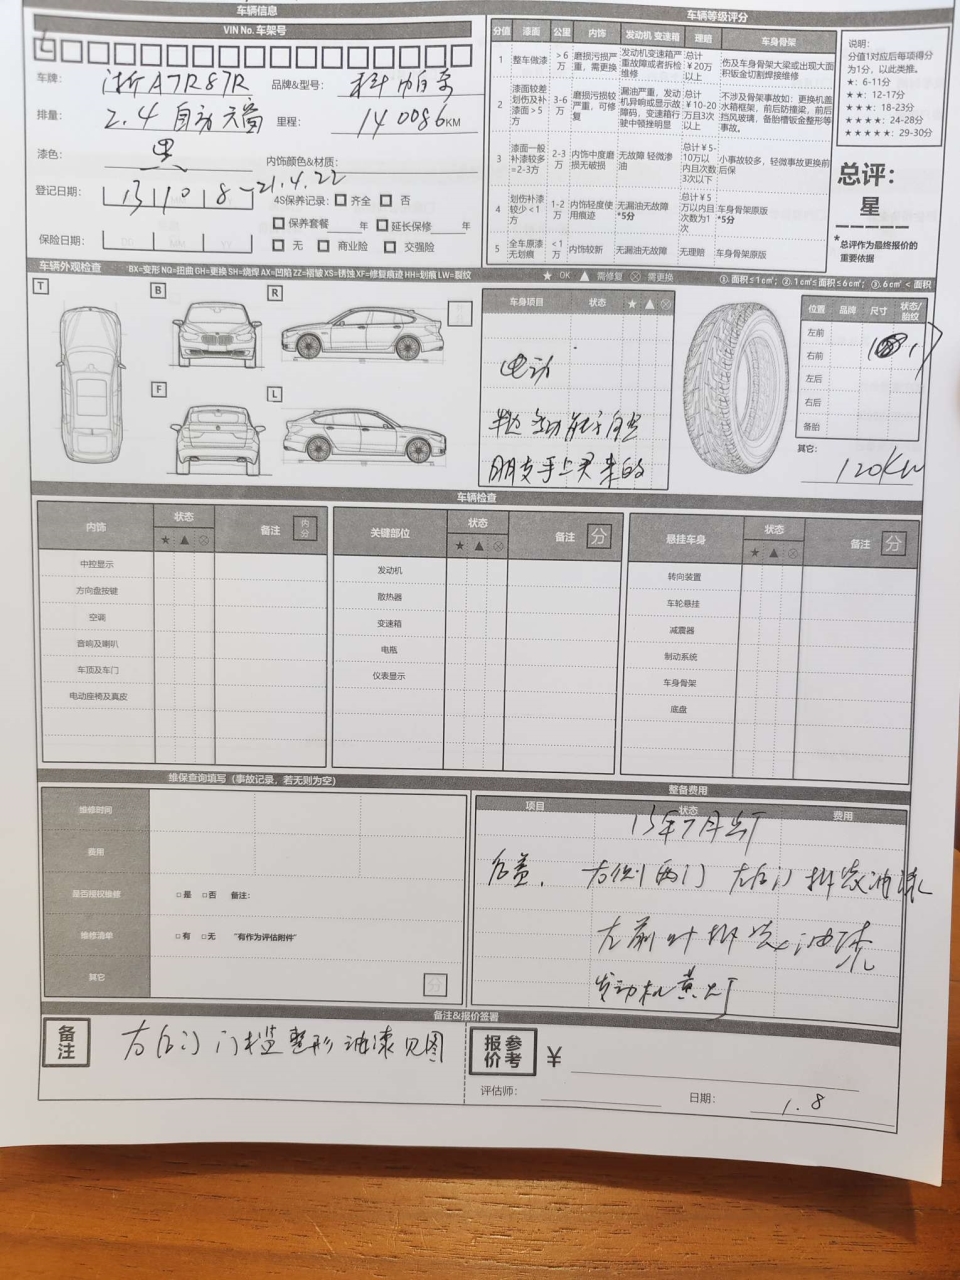 车辆信息
VIN No. 车架号
车牌： 浙A7R87R 品牌&型号： 科帕奇
排量： 2.4 自动 天窗 里程： 140086KM
漆色： 黑 内饰颜色&材质：
登记日期： 131018 -21.4.22
4S保养记录： □ 齐全 □ 否
□ 保养套餐 年 □ 延长保修 年
保险日期： □ 无 □ 商业险 □ 交强险
车辆等级评分
分值 漆面 公里 内饰 发动机 变速箱 理赔 车身骨架
1 整车做漆 > 6万 磨损污损严重，需更换 发动机变速箱严重故障或者拆检维修 总计￥20万以上 伤及车身骨架大梁或出现大面积钣金切割焊接维修
2 漆面较差 划伤及补漆面 > 5方 3-6万 磨损污损较严重，可修复 漏油严重，发动机异响或显示故障码，变速箱行驶中顿挫明显 总计￥10-20万且3次以上 不涉及骨架事故如：更换机盖水箱框架，前后防撞梁，前后挡风玻璃，备胎槽钣金整形等事故。
3 漆面一般 补漆较多=2-3方 2-3万 内饰中度磨损无破损 无故障 轻微渗油 总计￥5-10万以内且次数3次以下 小事故较多，轻微事故更换前后保
4 划伤补漆较少 < 1方 1-2万 内饰轻度使用痕迹 无漏油无故障 *5分 总计￥5万以内且次数为1次 车身骨架原版 *5分
5 全车原漆无划痕 < 1万 内饰较新 无漏油无故障 无理赔 车身骨架原版
说明：
分值1对应后每项得分为1分，以此类推。
★：6-11分
★★：12-17分
★★★：18-23分
★★★★：24-28分
★★★★★：29-30分
总评：
星
*总评作为最终报价的重要依据
车辆外观检查 *BX=变形 NQ=扭曲 GH=更换 SH=烧焊 AX=凹陷 ZZ=褶皱 XS=锈蚀 XF=修复痕迹 HH=划痕 LW=裂纹 ★ OK ▲ 需修复 ⊗ 需更换 ①. 面积≤1㎡；②. 1㎡≤面积≤6㎡；③. 6㎡<面积
T B R
F L
车身项目 状态 ★ ▲ ⊗
电动
朋友手上买来的
位置 品牌 尺寸 状态/胎纹
左前
右前
左后
右后
备胎
其它： 120KW
车辆检查
内饰 状态 备注 内分
★ ▲ ⊗
中控显示
方向盘按键
空调
音响及喇叭
车顶及车门
电动座椅及真皮
关键部位 状态 备注 分
★ ▲ ⊗
发动机
散热器
变速箱
电瓶
仪表显示
悬挂车身 状态 备注 分
★ ▲ ⊗
转向装置
车轮悬挂
减震器
制动系统
车身骨架
底盘
维保查询填写（事故记录，若无则为空）
维修时间
费用
是否授权维修 □ 是 □ 否 备注：
维修清单 □ 有 □ 无 "有作为评估附件"
其它 分
整备费用
项目 状态 费用
13年7月出厂
后盖. 右侧两门 左后门 钣金油漆
左前叶钣金油漆
发动机黄灯
备注&报价签署
备注 右后门门槛整形油漆见图
报价参考 ￥
评估师： 日期： 1.8